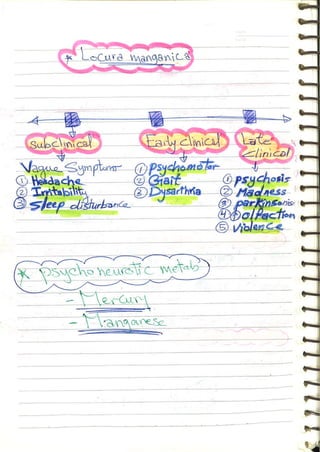 * Locura manganica
subclinical
Early clinical
Late clinical
Vague Symptums
① Headache
② Irritability
③ Sleep disturbance
① Psychomotor
② Gait
② Dysarthria
① psychosis
② Madness
③ parkinsonis
④ ↓ olfaction
⑤ violence
* psychoneurotic metals
- Mercury
- Manganese